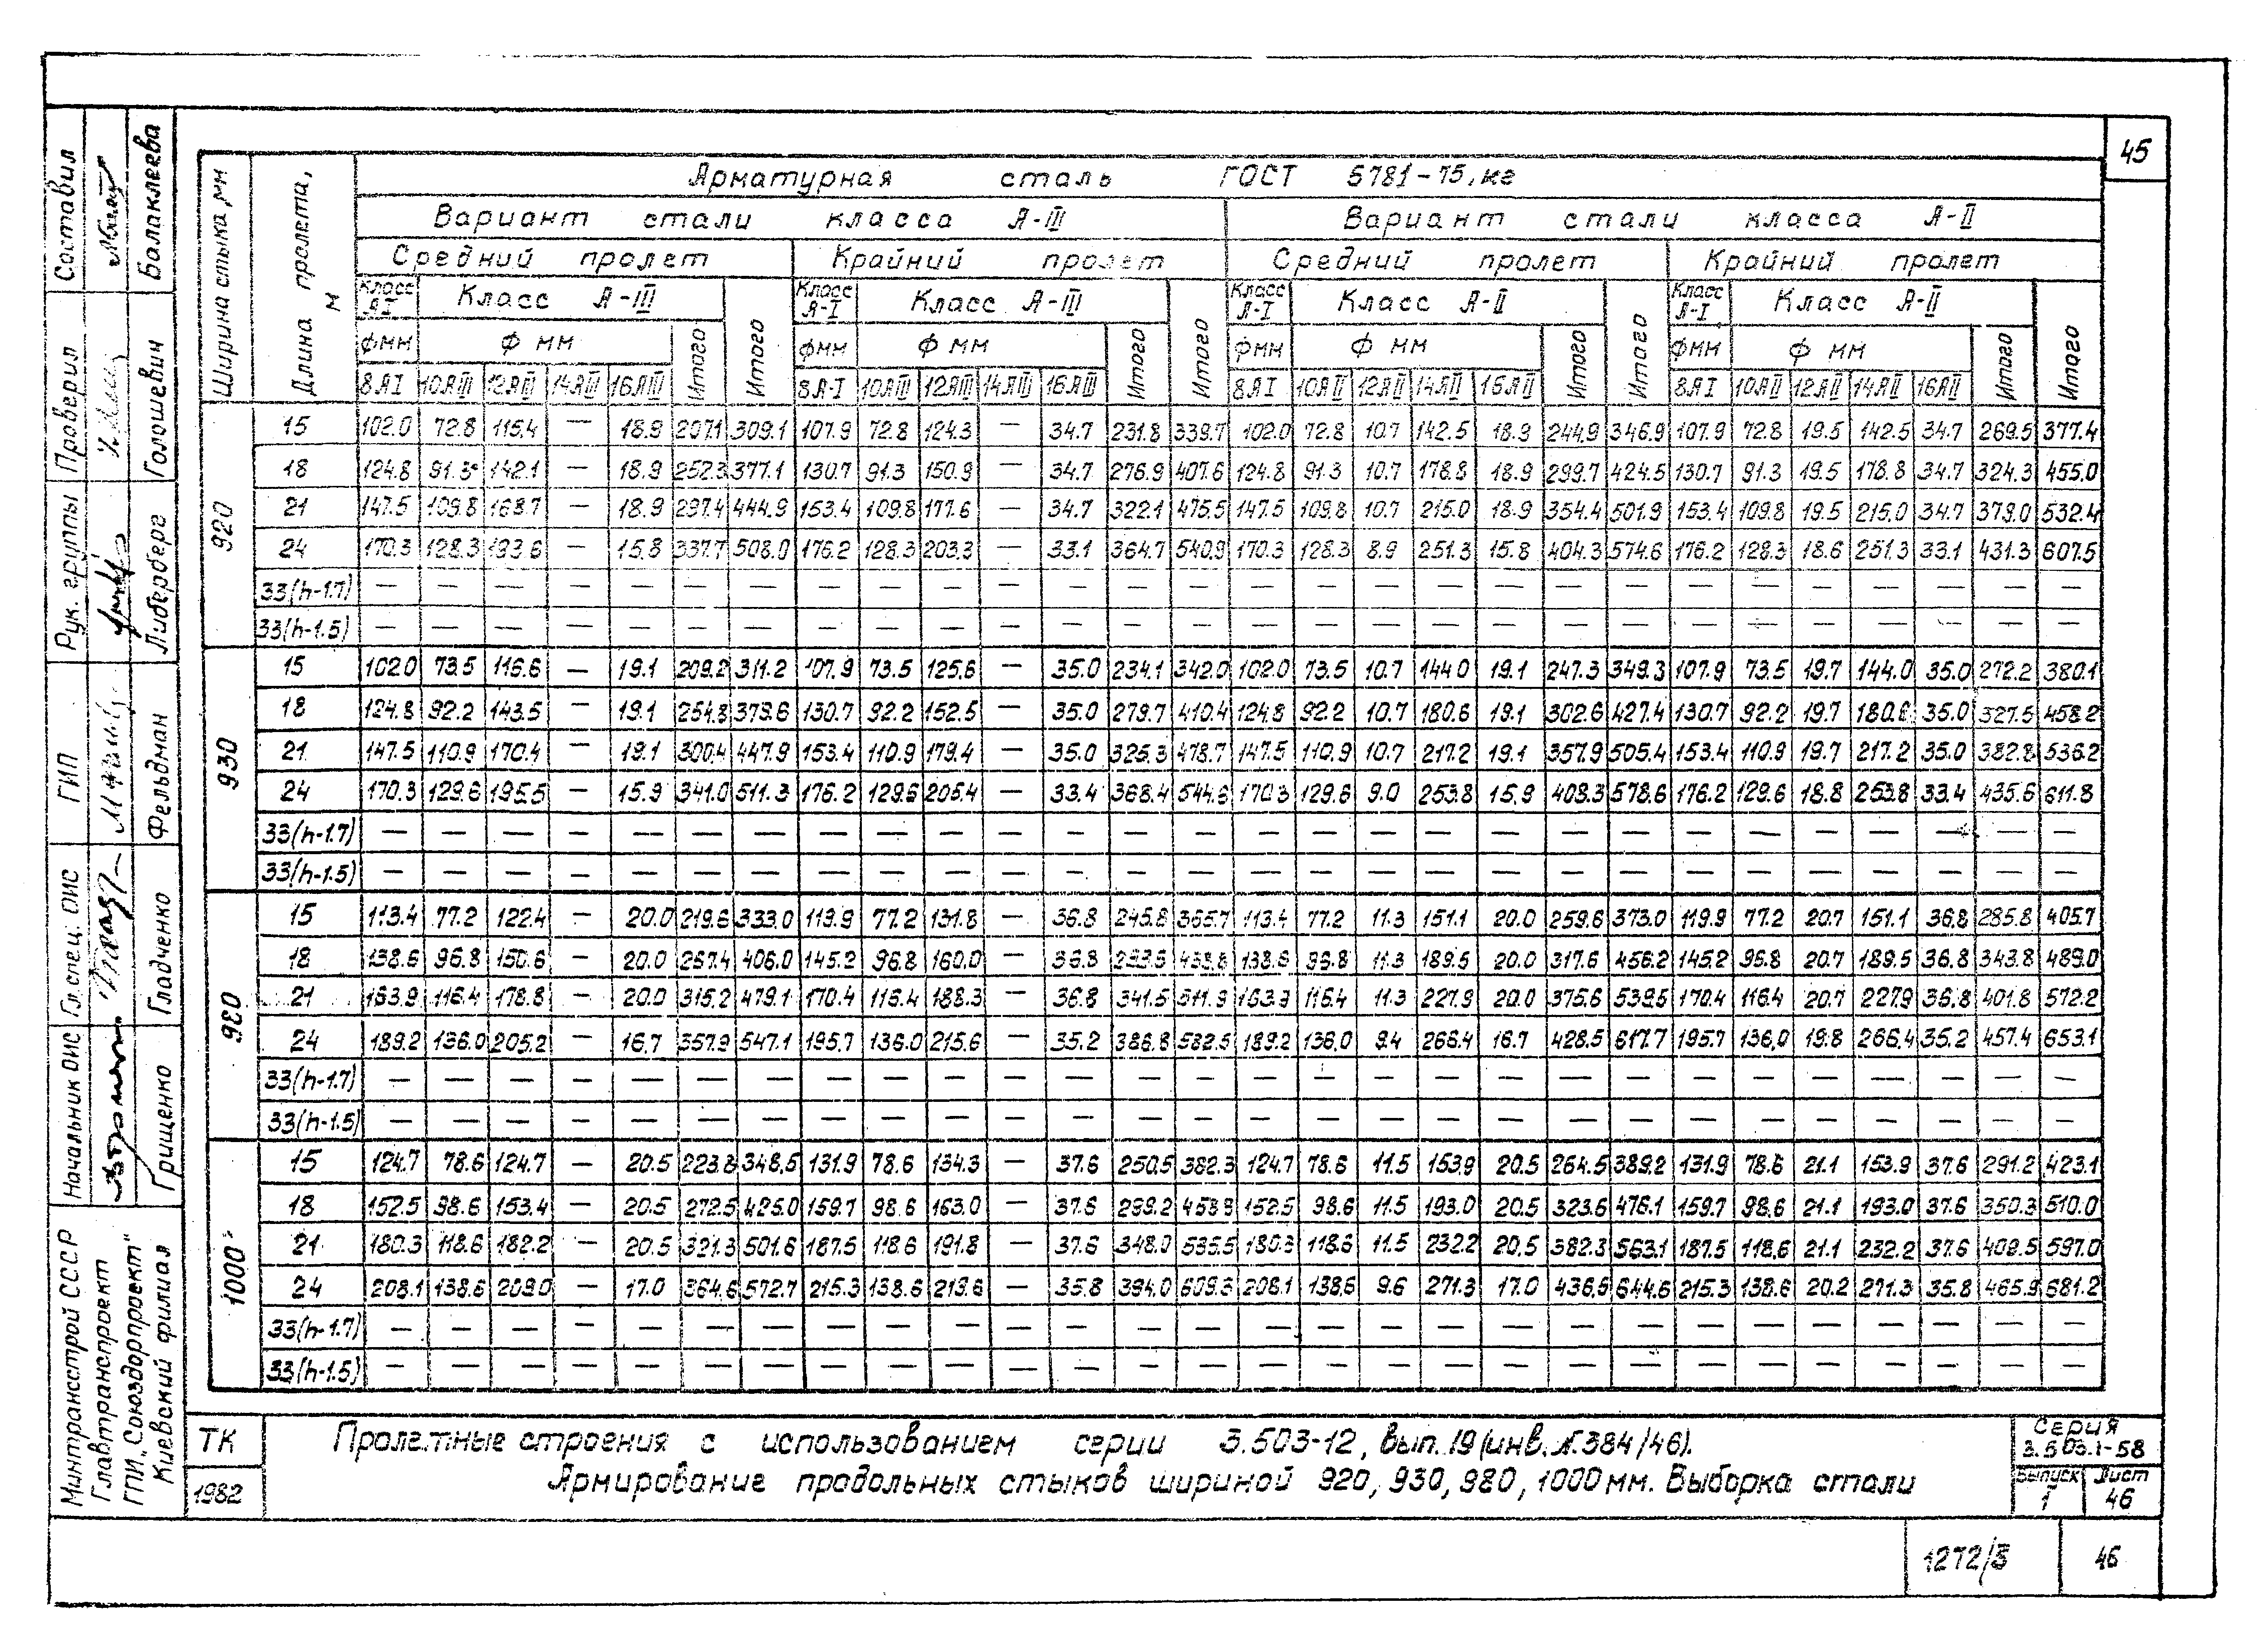 45
Арматурная сталь ГОСТ 5781-75, кг
Ширина стыка, мм
Длина пролета, м
Вариант стали класса А-III
Вариант стали класса А-II
Средний пролет
Крайний пролет
Средний пролет
Крайний пролет
Класс А-I Класс А-III Итого Класс А-I Класс А-III Итого Класс А-I Класс А-II Итого Класс А-I Класс А-II Итого
Ф мм Ф мм Итого Ф мм Ф мм Итого Ф мм Ф мм Итого Ф мм Ф мм Итого
8АI 10АIII 12АIII 14АIII 16АIII 8А-I 10АIII 12АIII 14АIII 16АIII 8АI 10АII 12АII 14АII 16АII 8АI 10АII 12АII 14АII 16АII
920
15 102.0 72.8 115.4 — 18.9 207.1 309.1 107.9 72.8 124.3 — 34.7 231.8 339.7 102.0 72.8 10.7 142.5 18.9 244.9 346.9 107.9 72.8 19.5 142.5 34.7 269.5 377.4
18 124.8 91.3 142.1 — 18.9 252.3 377.1 130.7 91.3 150.9 — 34.7 276.9 407.6 124.8 91.3 10.7 178.8 18.9 299.7 424.5 130.7 91.3 19.5 178.8 34.7 324.3 455.0
21 147.5 109.8 168.7 — 18.9 297.4 444.9 153.4 109.8 177.6 — 34.7 322.1 475.5 147.5 109.8 10.7 215.0 18.9 354.4 501.9 153.4 109.8 19.5 215.0 34.7 379.0 532.4
24 170.3 128.3 193.6 — 15.8 337.7 508.0 176.2 128.3 203.3 — 33.1 364.7 540.9 170.3 128.3 8.9 251.3 15.8 404.3 574.6 176.2 128.3 18.6 251.3 33.1 431.3 607.5
33(h-1.7) — — — — — — — — — — — — — — — — — — — — — — — — — — — —
33(h-1.5) — — — — — — — — — — — — — — — — — — — — — — — — — — — —
930
15 102.0 73.5 116.6 — 19.1 209.2 311.2 107.9 73.5 125.6 — 35.0 234.1 342.0 102.0 73.5 10.7 144.0 19.1 247.3 349.3 107.9 73.5 19.7 144.0 35.0 272.2 380.1
18 124.8 92.2 143.5 — 19.1 254.8 379.6 130.7 92.2 152.5 — 35.0 279.7 410.4 124.8 92.2 10.7 180.6 19.1 302.6 427.4 130.7 92.2 19.7 180.6 35.0 327.5 458.2
21 147.5 110.9 170.4 — 19.1 300.4 447.9 153.4 110.9 179.4 — 35.0 325.3 478.7 147.5 110.9 10.7 217.2 19.1 357.9 505.4 153.4 110.9 19.7 217.2 35.0 382.8 536.2
24 170.3 129.6 195.5 — 15.9 341.0 511.3 176.2 129.6 205.4 — 33.4 368.4 544.6 170.3 129.6 9.0 253.8 15.9 408.3 578.6 176.2 129.6 18.8 253.8 33.4 435.6 611.8
33(h-1.7) — — — — — — — — — — — — — — — — — — — — — — — — — — — —
33(h-1.5) — — — — — — — — — — — — — — — — — — — — — — — — — — — —
980
15 113.4 77.2 122.4 — 20.0 219.6 333.0 119.9 77.2 131.8 — 36.8 245.8 365.7 113.4 77.2 11.3 151.1 20.0 259.6 373.0 119.9 77.2 20.7 151.1 36.8 285.8 405.7
18 138.6 96.8 150.6 — 20.0 267.4 406.0 145.2 96.8 160.0 — 36.8 293.6 438.8 138.6 96.8 11.3 189.5 20.0 317.6 456.2 145.2 96.8 20.7 189.5 36.8 343.8 489.0
21 163.9 116.4 178.8 — 20.0 315.2 479.1 170.4 116.4 188.3 — 36.8 341.5 511.9 163.9 116.4 11.3 227.9 20.0 375.6 539.5 170.4 116.4 20.7 227.9 36.8 401.8 572.2
24 189.2 136.0 205.2 — 16.7 357.9 547.1 195.7 136.0 215.6 — 35.2 386.8 582.5 189.2 136.0 9.4 266.4 16.7 428.5 617.7 195.7 136.0 19.8 266.4 35.2 457.4 653.1
33(h-1.7) — — — — — — — — — — — — — — — — — — — — — — — — — — — —
33(h-1.5) — — — — — — — — — — — — — — — — — — — — — — — — — — — —
1000
15 124.7 78.6 124.7 — 20.5 223.8 348.5 131.9 78.6 134.3 — 37.6 250.5 382.3 124.7 78.6 11.5 153.9 20.5 264.5 389.2 131.9 78.6 21.1 153.9 37.6 291.2 423.1
18 152.5 98.6 153.4 — 20.5 272.5 425.0 159.7 98.6 163.0 — 37.6 299.2 458.9 152.5 98.6 11.5 193.0 20.5 323.6 476.1 159.7 98.6 21.1 193.0 37.6 350.3 510.0
21 180.3 118.6 182.2 — 20.5 321.3 501.6 187.5 118.6 191.8 — 37.6 348.0 535.5 180.3 118.6 11.5 232.2 20.5 382.3 563.1 187.5 118.6 21.1 232.2 37.6 409.5 597.0
24 208.1 138.6 209.0 — 17.0 364.6 572.7 215.3 138.6 219.6 — 35.8 394.0 609.3 208.1 138.6 9.6 271.3 17.0 436.5 644.6 215.3 138.6 20.2 271.3 35.8 465.9 681.2
33(h-1.7) — — — — — — — — — — — — — — — — — — — — — — — — — — — —
33(h-1.5) — — — — — — — — — — — — — — — — — — — — — — — — — — — —
ТК
1982
Пролетные строения с использованием серии 3.503-12, вып. 19 (инв. N.384/46).
Армирование продольных стыков шириной 920, 930, 980, 1000 мм. Выборка стали
Серия
3.503.1-58
Выпуск Лист
1 46
1272/3 46
Составил Балаклеева
Проверил Голошевич
Рук. группы Либерберг
ГИП Фельдман
Гл. спец. ОИС Гладченко
Начальник ОИС Грищенко
Минтрансстрой СССР
Главтранспроект
ГПИ „Союздорпроект“
Киевский филиал